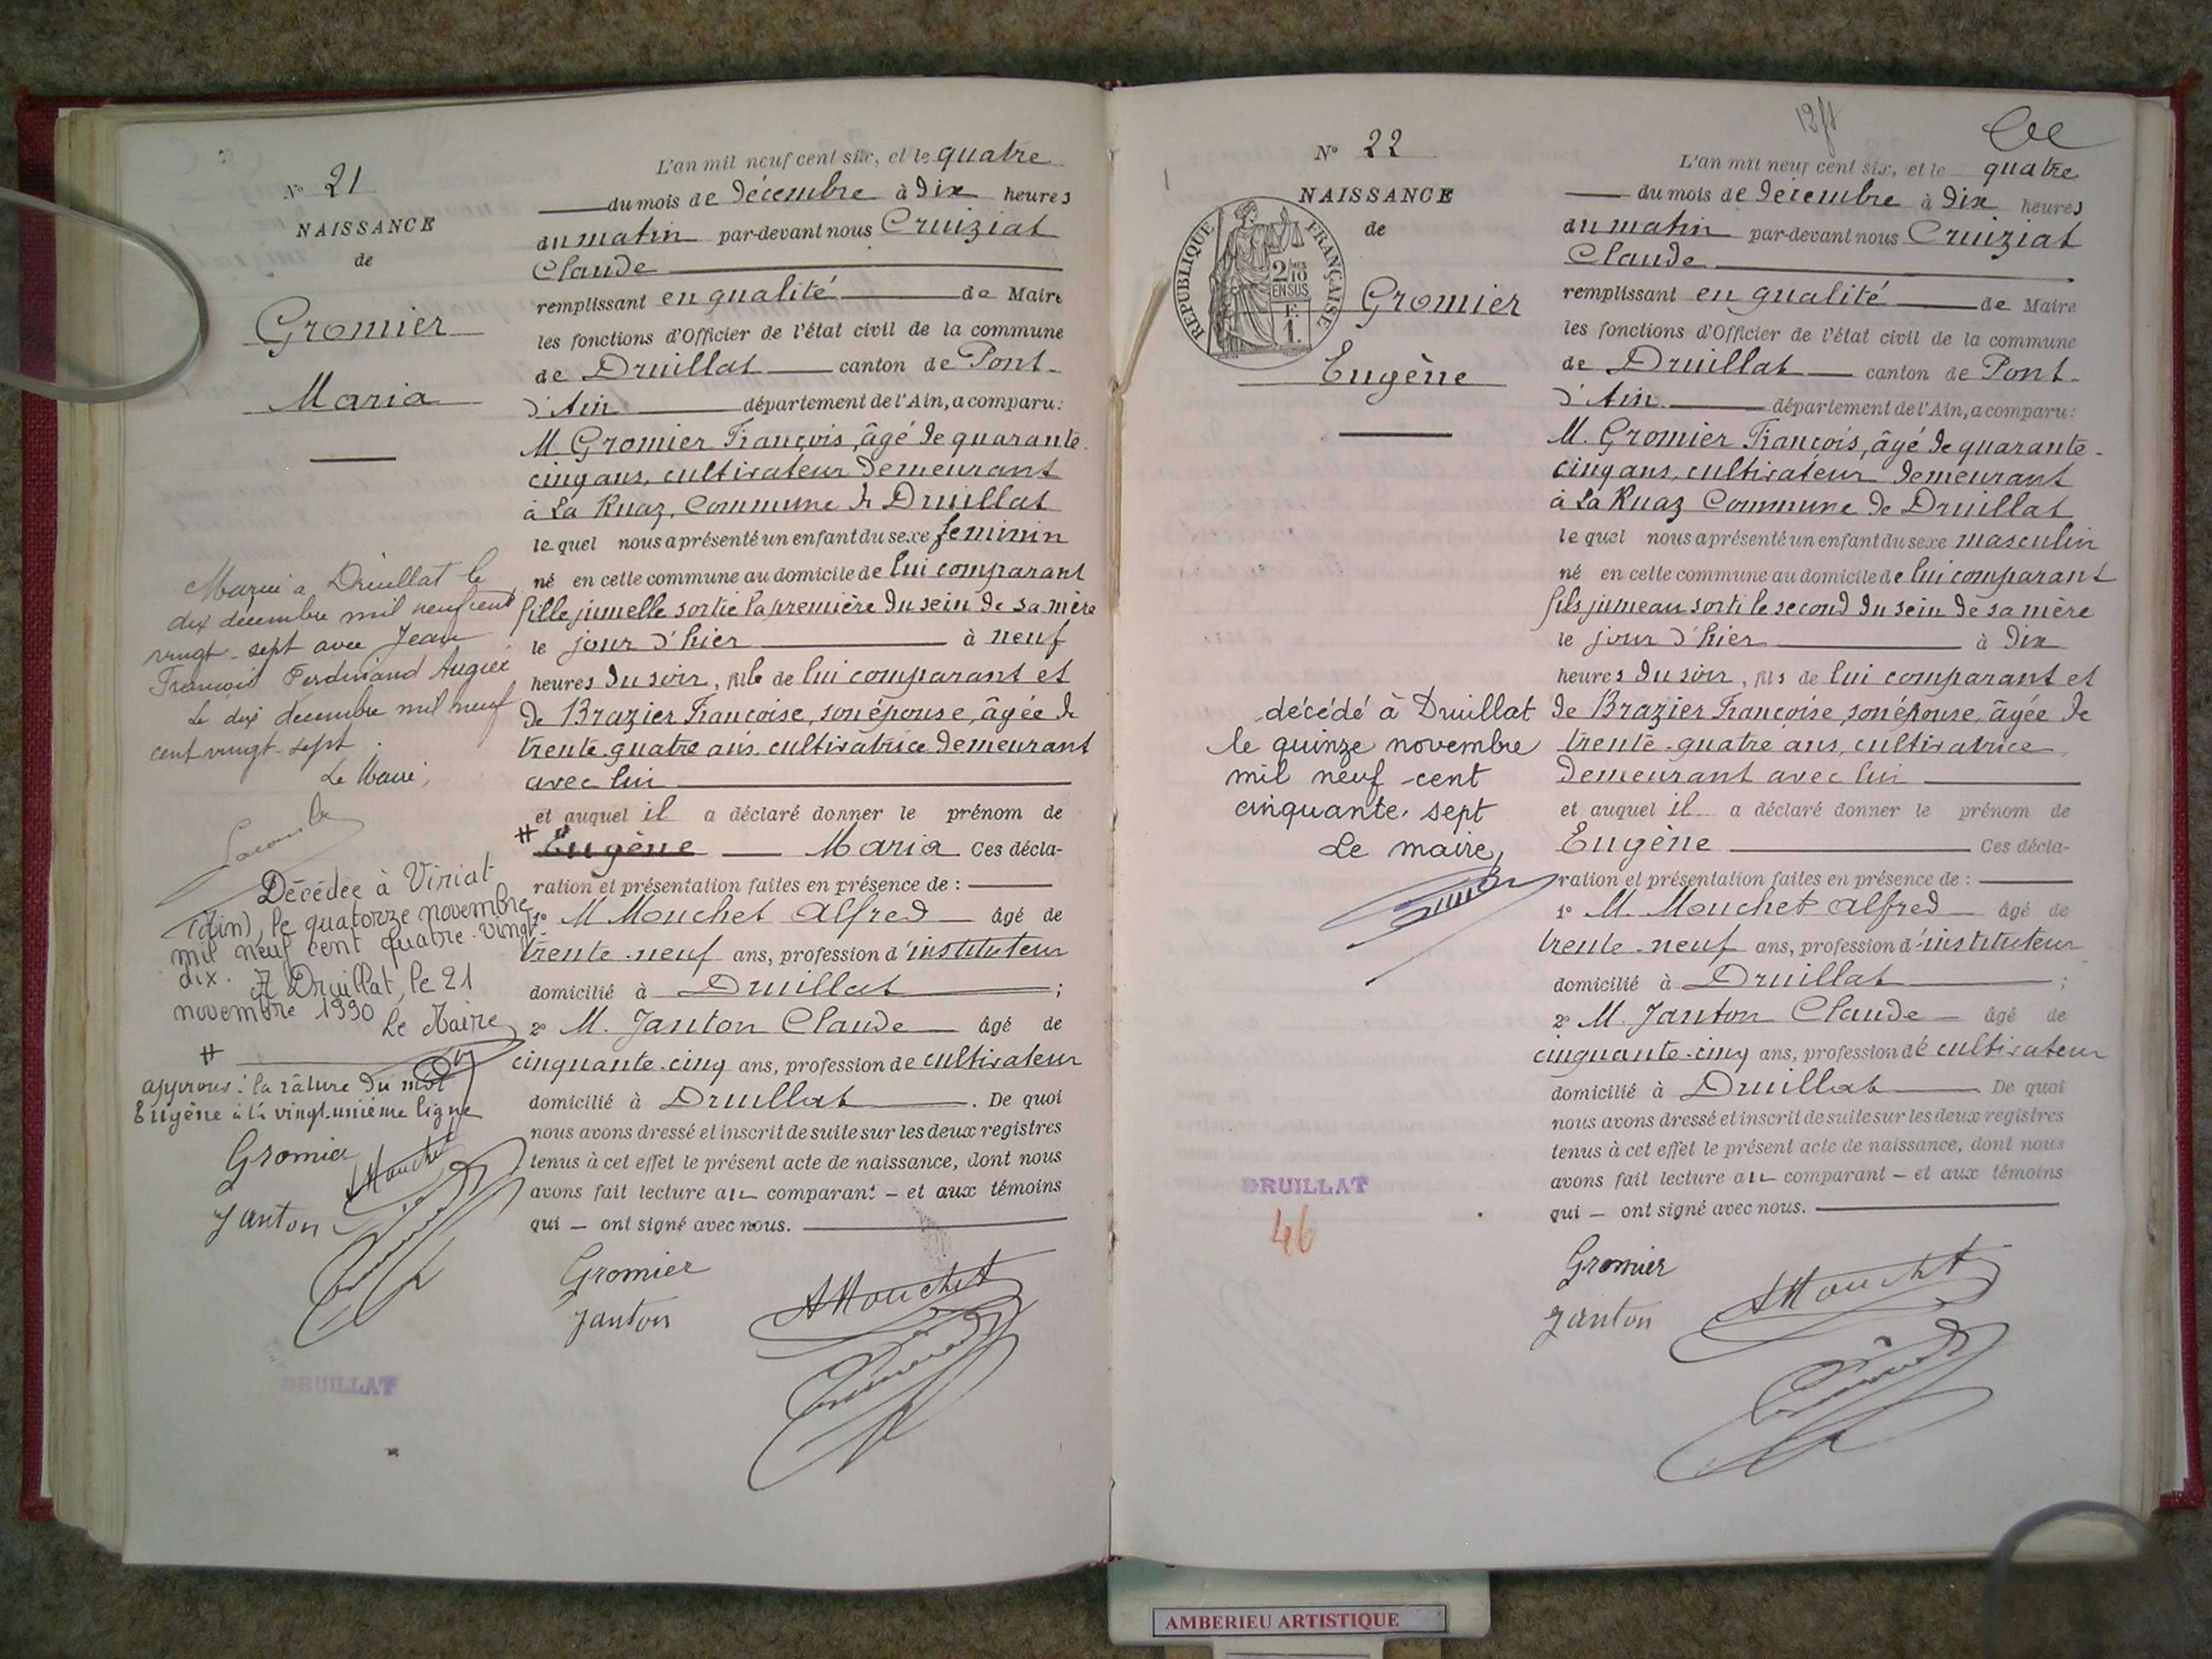 N° 21
NAISSANCE
de
Gromier
Maria
L'an mil neuf cent six, et le quatre
du mois de décembre à dix heures
du matin par-devant nous Cruiziat
Claude
remplissant en qualité de Maire
les fonctions d'Officier de l'état civil de la commune
de Druillat canton de Pont-
d'Ain département de l'Ain, a comparu:
M. Gromier François, âgé de quarante-
cinq ans, cultivateur demeurant
à La Ruaz, Commune de Druillat
lequel nous a présenté un enfant du sexe feminin
né en cette commune au domicile de lui comparant
fille jumelle sortie la première du sein de sa mère
le jour d'hier à neuf
heures du soir, fille de lui comparant et
de Brazier Françoise, son épouse, âgée de
trente quatre ans, cultivatrice demeurant
avec lui
et auquel il a déclaré donner le prénom de
# Eugène Maria Ces décla-
ration et présentation faites en présence de :
1° M Mouchet Alfred âgé de
trente-neuf ans, profession d'instituteur
domicilié à Druillat ;
2° M. Janton Claude âgé de
cinquante-cinq ans, profession de cultivateur
domicilié à Druillat . De quoi
nous avons dressé et inscrit de suite sur les deux registres
tenus à cet effet le présent acte de naissance, dont nous
avons fait lecture au comparant – et aux témoins
qui – ont signé avec nous.
Gromier
AMouchet
Janton
Marié à Druillat le
dix decembre mil neuf cent
vingt-sept avec Jean
François Ferdinand Augué
Le dix decembre mil neuf
cent vingt-sept.
Le Maire,
Décédée à Viriat
(Ain), le quatorze novembre
mil neuf cent quatre-vingt-
dix. A Druillat, le 21
novembre 1990 Le Maire
#
approuvé la râture du mot
Eugène à la vingt-unième ligne
Gromier
AMouchet
Janton
DRUILLAT
N° 22
NAISSANCE
de
RÉPUBLIQUE FRANÇAISE
2/10
EN SUS
F.
1.
Gromier
Eugène
L'an mil neuf cent six, et le quatre
du mois de décembre à dix heures
du matin par-devant nous Cruiziat
Claude
remplissant en qualité de Maire
les fonctions d'Officier de l'état civil de la commune
de Druillat canton de Pont-
d'Ain département de l'Ain, a comparu:
M. Gromier François, âgé de quarante-
cinq ans, cultivateur demeurant
à La Ruaz Commune de Druillat
lequel nous a présenté un enfant du sexe masculin
né en cette commune au domicile de lui comparant
fils jumeau sorti le second du sein de sa mère
le jour d'hier à dix
heures du soir, fils de lui comparant et
de Brazier Françoise, son épouse, âgée de
trente-quatre ans, cultivatrice
demeurant avec lui
et auquel il a déclaré donner le prénom de
Eugène Ces décla-
ration et présentation faites en présence de :
1° M. Mouchet Alfred âgé de
trente-neuf ans, profession d'instituteur
domicilié à Druillat ;
2° M. Janton Claude âgé de
cinquante-cinq ans, profession de cultivateur
domicilié à Druillat De quoi
nous avons dressé et inscrit de suite sur les deux registres
tenus à cet effet le présent acte de naissance, dont nous
avons fait lecture au comparant – et aux témoins
qui – ont signé avec nous.
Gromier
AMouchet
Janton
décédé à Druillat
le quinze novembre
mil neuf-cent
cinquante-sept
Le maire,
DRUILLAT
46
AMBERIEU ARTISTIQUE